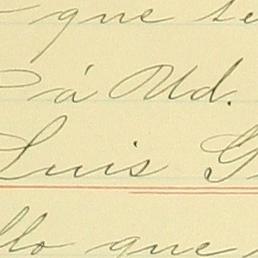 que te
á Ud.
Luis G
llo que